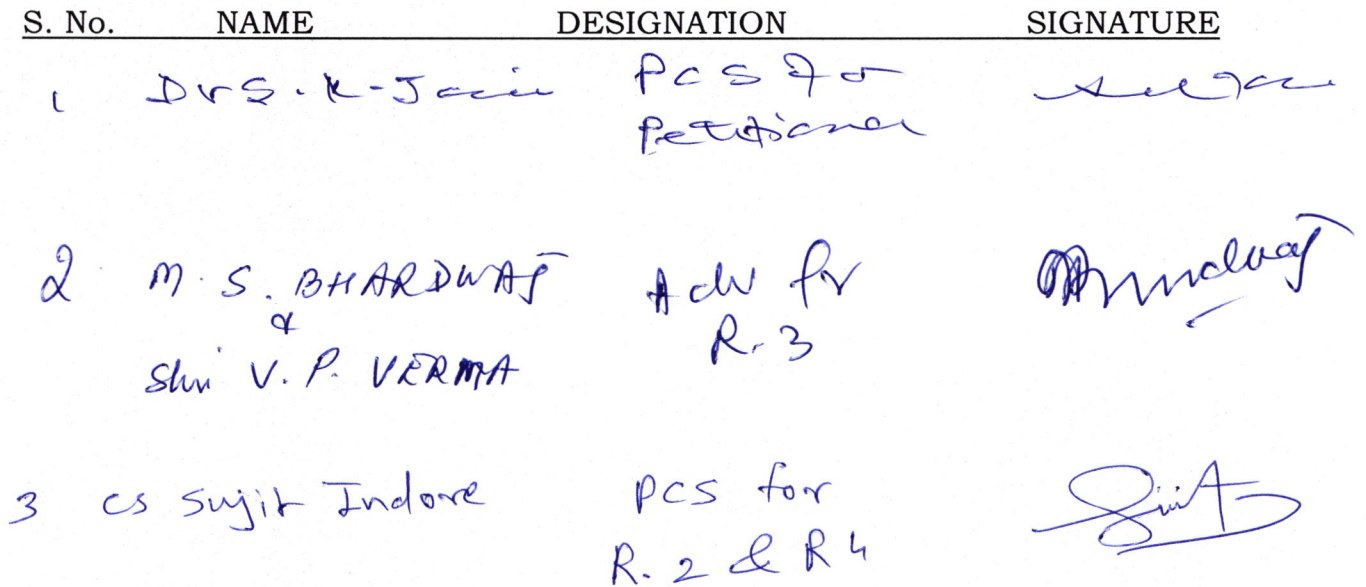 S. No. NAME DESIGNATION SIGNATURE
1 Dr S. K. Jain PCS for
Petitioner
2 M. S. BHARDWAJ Adv for
& R. 3
Shri V. P. VERMA
3 CS Sujit Indore PCS for
R. 2 & R 4